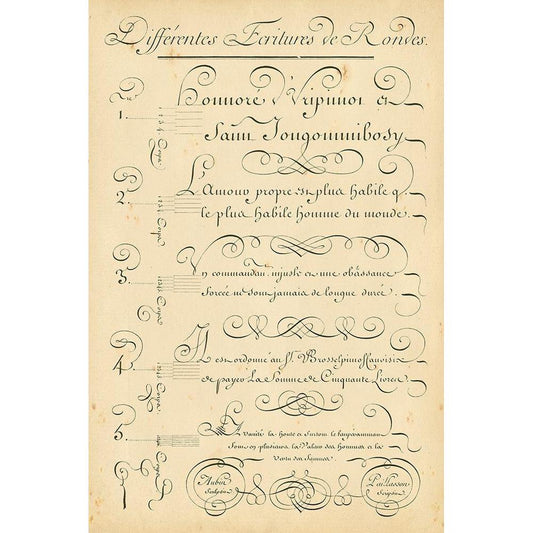 Différentes Ecritures de Rondes.
1.
Honnoré d'Vripinnoi et
Sainn Jougommibosy
2.
L'Amour propre est plus habile q.
le plus habile homme du monde.
3.
Un commandam. injuste et une obéissance
forcée ne sont jamais de longue durée.
4.
Il est ordonné au Sr.
de payer La Somme de Cinquante Livres
5.
La Vanité la honte et surtout le
Font en plusieurs la Valeur des hommes et la
Vertu des femmes
Aubin
Sculpsit
Paillasson
Scripsit